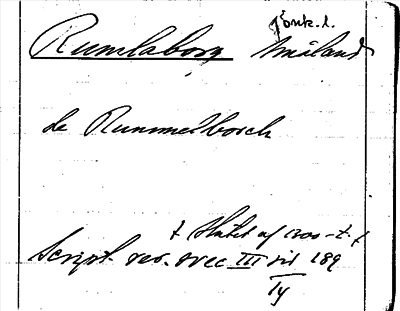 Jönk. l.
Rumlaborg Småland
de Rummelborch
t. Slutet af 1300-t.
Script. rer. svec. III sid 189
Ty